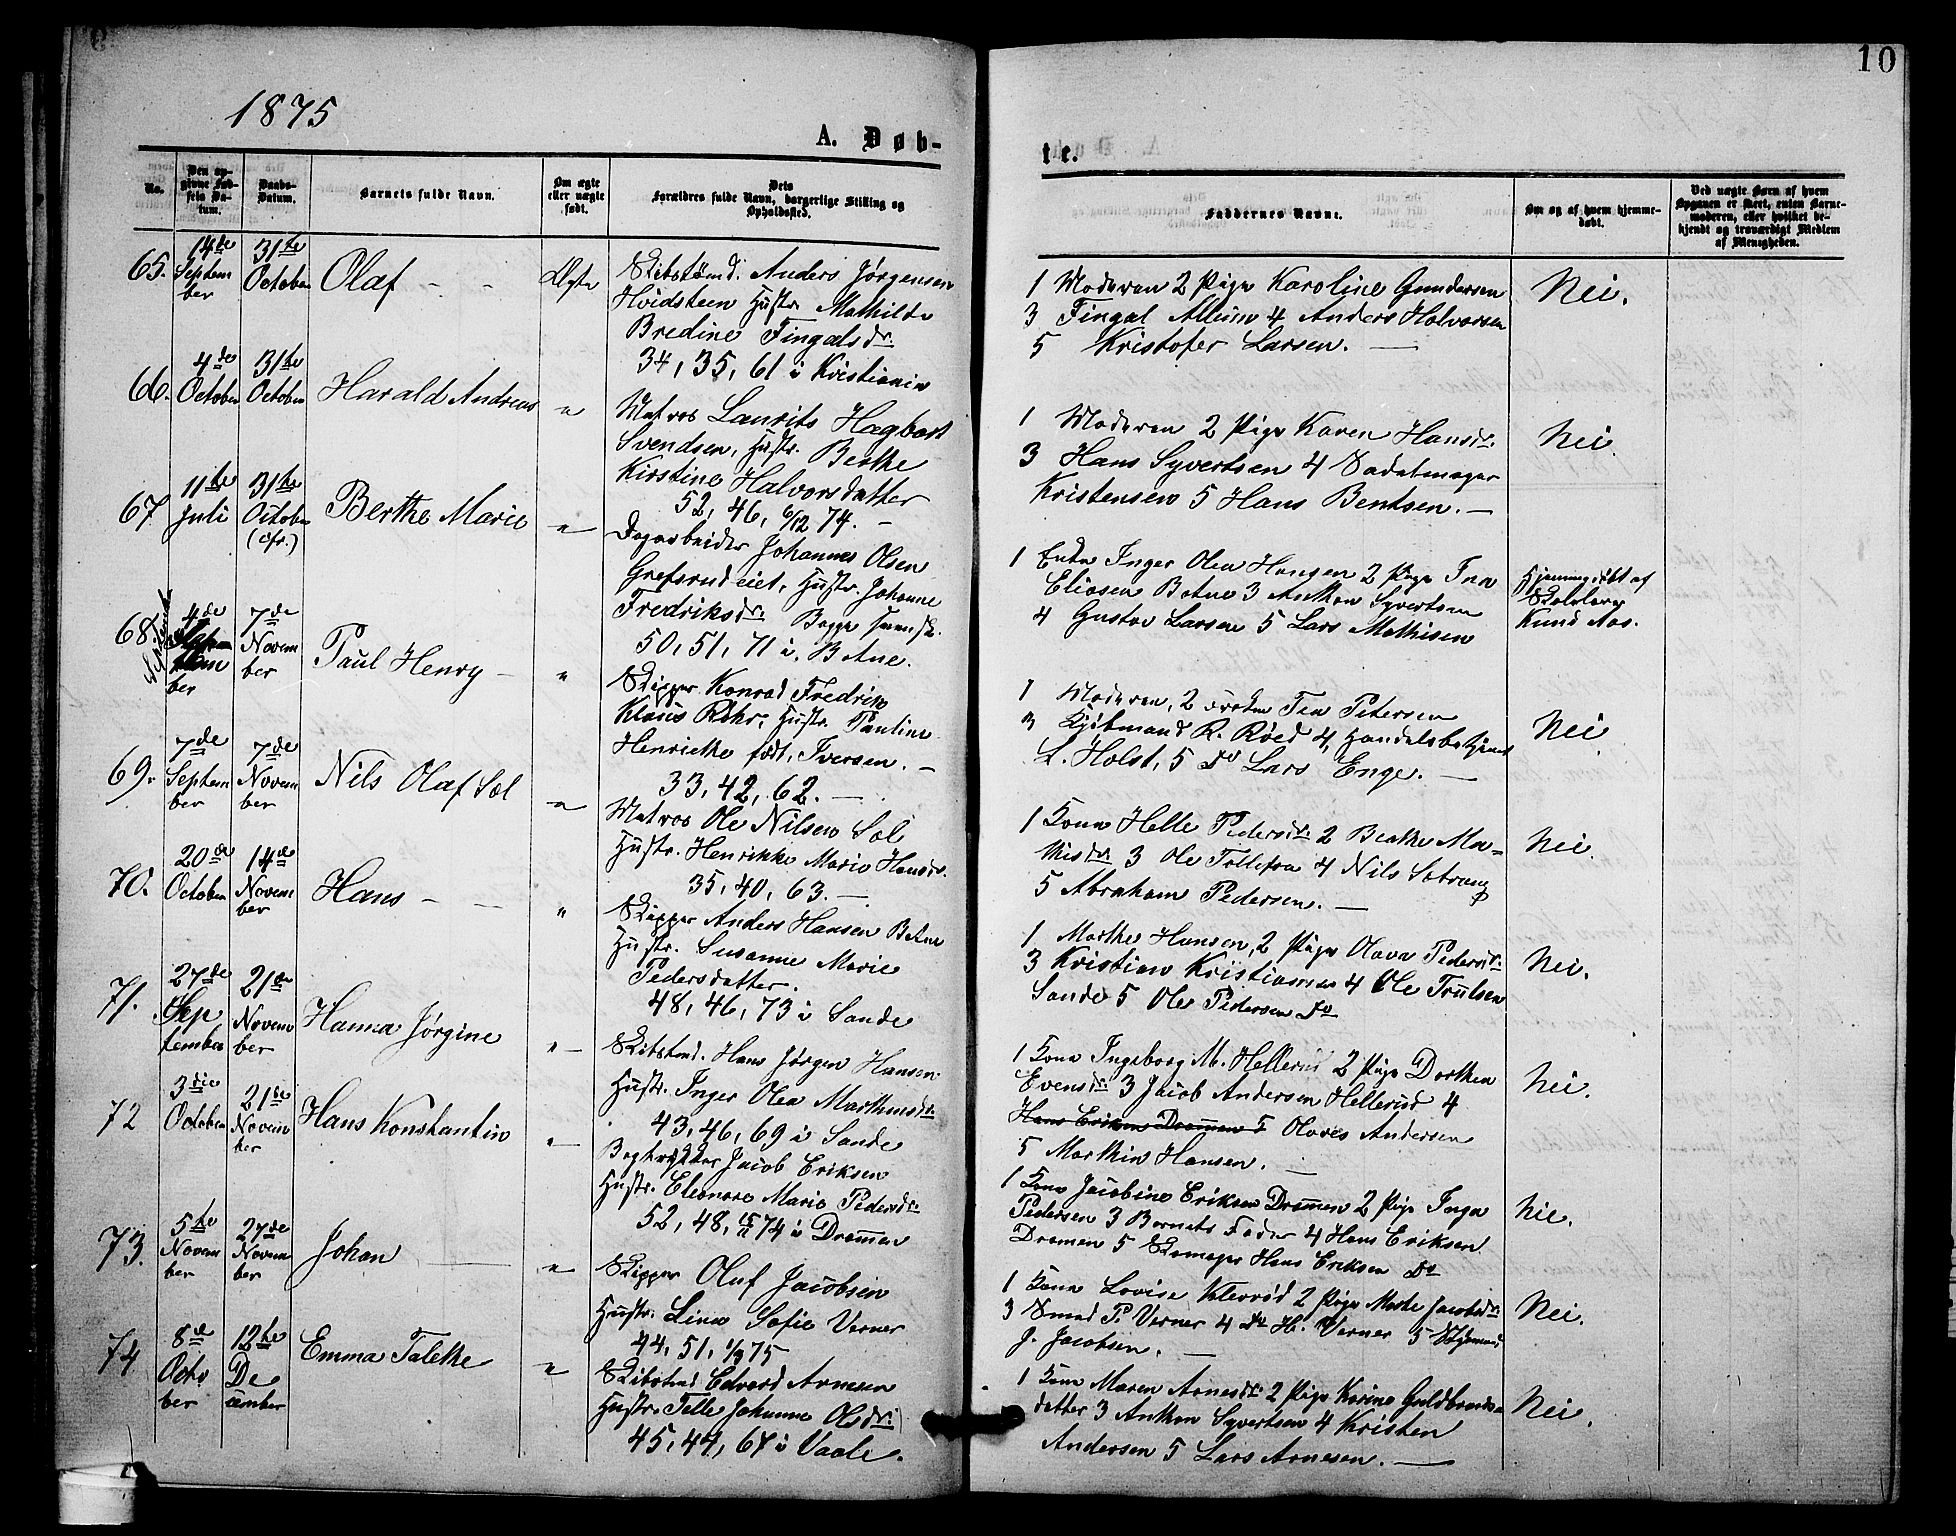 10
1875
A. Døb-
te.
No.
Den opgivne Fødsels Datum.
Daabs-Datum.
Barnets fulde Navn.
Om ægte eller uægte født.
Dets Forældres fulde Navn, borgerlige Stilling og Opholdssted.
Faddernes Navne.
Om og af hvem hjemmedøbt.
Ved uægte Børn af hvem Opgaven er skeet, enten Barnemoderen, eller hvilket bekjendt og troværdigt Medlem af Menigheden.
65. 14de September 31te October Olaf – – Ægte
Skibstømd. Anders Jørgensen
Hvidsteen Hustr. Mathilde
Bredine Fingalsdr.
34, 35, 61 i Kristiania
1 Moderen 2 Pige Karoline Gundersen
3 Fingal Allum 4 Anders Halvorsen
5 Kristofer Larsen. —
Nei.
66. 4de October 31te October Harald Andreas "
Matros Laurits Hagbart
Svendsen, Hustr. Berthe
Kirstine Halvorsdatter
52, 46, 6/12 74. –
1 Moderen 2 Pige Karen Hansdr.
3 Hans Syvertsen 4 Sadelmager
Kristensen 5 Hans Bentsen. –
Nei.
67 11te Juli 31te October (cfr.) Berthe Marie "
Dagarbeider Johannes Olsen
Grefsrudeiet, Hustr. Johanne
Fredriksdr. Begge svenske
50, 51, 71 i Botne.
1 Enke Inger Olea Haugen 2 Pige Ina
Eliasen Botne 3 Anthon Syvertsen
4 Gustav Larsen 5 Lars Mathisen
Hjemmedøbt af
Skolelærer
Knud Aas.
68. 4de September 7de November Paul Henry – "
Skipper Konrad Fredrik
Klaus Röhr, Hustr. Pauline
Henrikke født Iversen. –
33, 42, 62. —
1 Moderen, 2 Frøken Tea Petersen
3 Kjøbmand R. Röed 4, Handelsbetjent
L. Holst, 5 Do Lars Enge. —
Nei
69. 7de September 7de November Nils Olaf Sol "
Matros Ole Nilsen Sol
Hustr. Henrikke Marie Hansdr.
35, 40, 63. —
1 Kone Helle Pedersdr. 2 Beathe Ma=
thisdr. 3 Ole Tollefsen 4 Nils
5 Abraham Pedersen. —
Nei.
70. 20de October 14de November Hans – – "
Skipper Anders Hansen Botne
Hustr. Susanne Marie
Pedersdatter.
48, 46, 73 i Sande
1 Marthe Hansen, 2 Pige Olava Pedersdr.
3 Kristian Kristiansen 4 Ole Trulsen
Sande 5 Ole Pedersen Do
Nei.
71. 27de September 21de November Hanna Jørgine " –
Skibstmd. Hans Jørgen Hansen
Hustr. Inger Olea Marthinsdr.
43, 46, 69 i Sande
1 Kone Ingeborg M. Hellerud 2 Pige Dorthea
Evensdr. 3 Jacob Andersen Hellerud 4
Hans Eriksen Drammen 5 Olaves Andersen
5 Marthin Hansen. —
Nei.
72 3die October 21de November Hans Konstantin "
Bogtrykker Jacob Eriksen
Hustr. Eleonore Marie Pedersdr.
52, 48, 74 i Dramen
1 Kone Jacobine Eriksen Dramen 2 Pige Inga
Pedersen 3 Barnets Fader 4 Hans Eriksen
Dramen 5 Skomager Hans Eriksen Do
Nei.
73. 5te November 27de November Johan — "
Skipper Oluf Jacobsen
Hustr. Lina Sofie Verner
44, 51, 1/9 75
1 Kone Lovise Kleivrød 2 Pige Marthe Jacobsdr.
3 Smed P. Verner 4 Do H. Verner 5
J. Jacobsen. —
Nei.
74 8de October 12te December Emma Talethe "
Skibstmd Edvard Arnesen
Hustr. Telle Johanne Olsdr.
45, 44, 67 i Vaale.
1 Kone Maren Arnesdr. 2 Pige Karine Guldbrands=
datter 3 Anthon Syvertsen 4 Kristen
Andersen 5 Lars Arnesen. —
Nei.